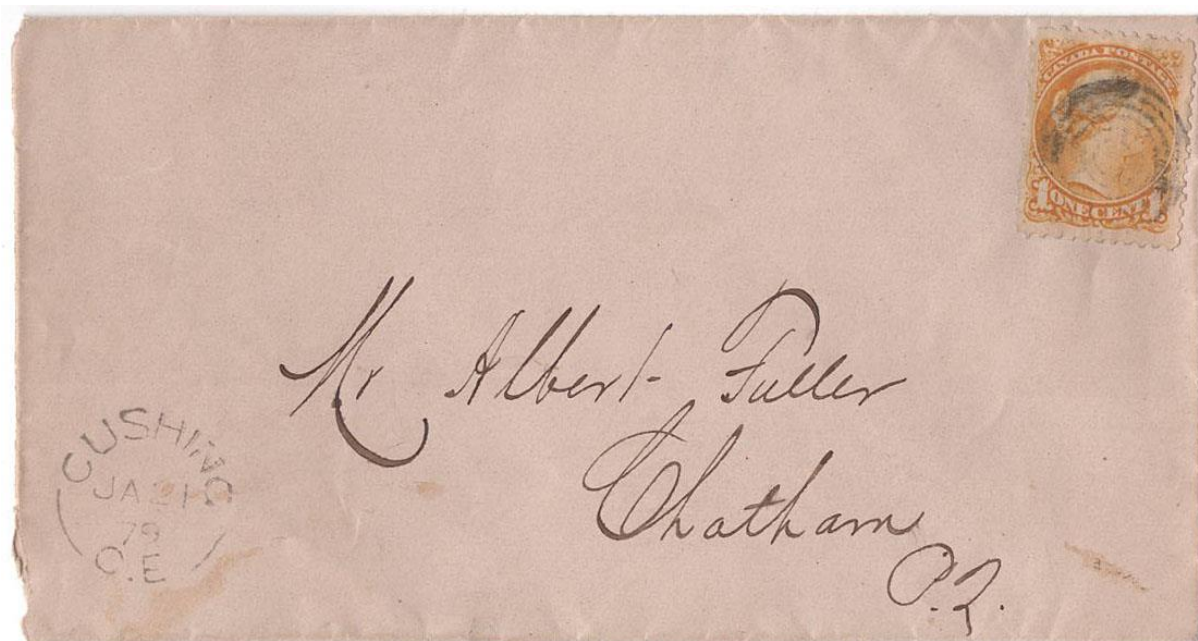 CANADA POSTAGE
1 ONE CENT 1
Mr Albert Fuller
Chatham
P.Q.
CUSHING
JA 21
79
C.E